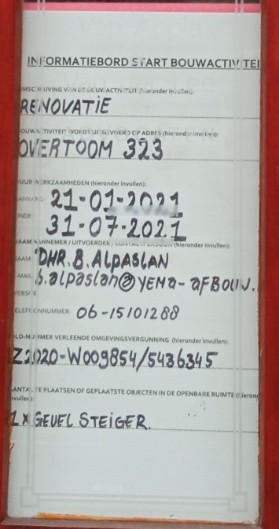 INFORMATIEBORD START BOUWACTIVITEI
OMSCHRIJVING VAN DE BOUWACTIVITEIT (hieronder invullen):
RENOVATIE
BOUWACTIVITEIT WORDT UITGEVOERD OP ADRES (hieronder invullen):
OVERTOOM 323
DUUR WERKZAAMHEDEN (hieronder invullen):
21-01-2021
EINDE
31-07-2021
NAAM AANNEMER / UITVOERDER / (hieronder invullen):
NAAM DHR. B. ALPASLAN
MAIL b.alpaslan@YEMA-AFBOUW.
TELEFOONNUMMER 06-15101288
OLO-NUMMER VERLEENDE OMGEVINGSVERGUNNING (hieronder invullen):
Z2020-W009854/5436345
AANTAL TE PLAATSEN OF GEPLAATSTE OBJECTEN IN DE OPENBARE RUIMTE (hieron
invullen):
1 X GEVEL STEIGER.